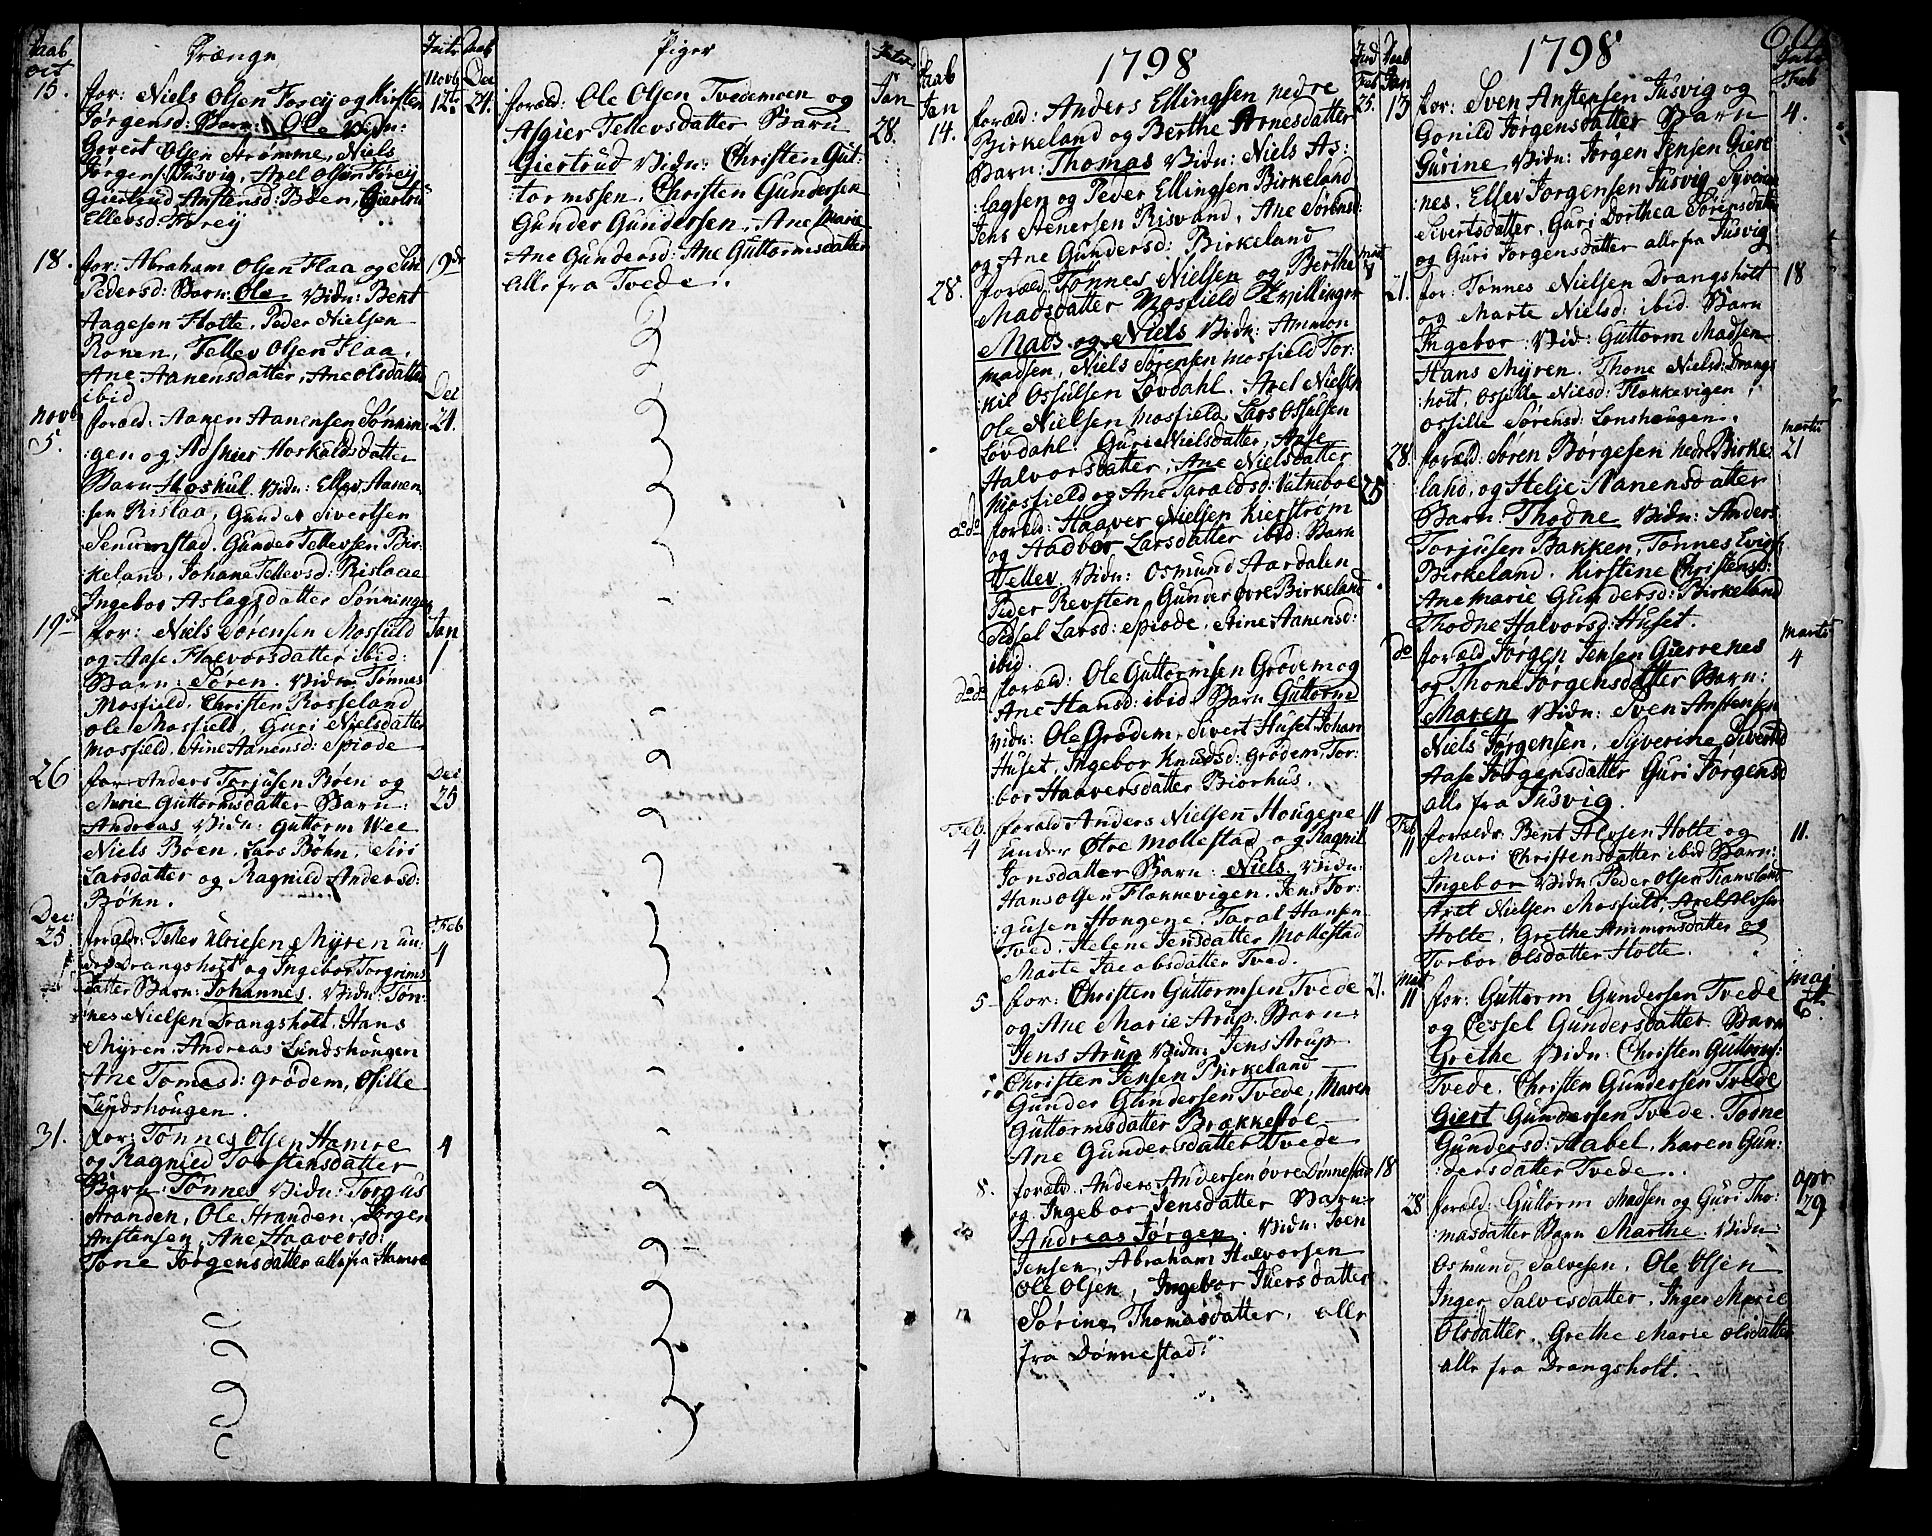 Daab
Drænge
Intr.
oct
15.
for: Niels Olsen Forey og Kirsten
Novb
12te
Jørgensd: Barn: Ole Vidn:
Govert Olsen Strømme, Niels
Jørgens: Tusvig, Axel Olsen Forey
Giertrud Anstensd: Böen, Giertru
Ellevsd: Forey
18.
for: Abraham Olsen Flaa og Siri
19de
Pedersd: Barn: Ole. Vidn: Bent
Aagesen Holte, Peder Nielsen
Ronen, Tellev Olsen Flaa,
Ane Aanensdatter, Ane Olsdatter
ibid
Novb
5.
foræld: Aanen Aanensen Sønnin-
Dec
24.
:gen og Adshier Hoskuldsdatter
Barn Hoskul. Vidn: Ellev Aanen
:sen Rislaa, Gunder Sivertsen
Senumstad. Gunder Tellevsen Bir-
:keland, Johane Tellevsd: Rislaae
Ingebor Aslagsdatter Sønningen
19de
for: Niels Sørensen Mosfield
Jan
1
og Aase Halvorsdatter ibid:
Barn: Søren. Vidn Tønnes
Mosfield, Christen Rosseland
Ole Mosfield, Guri Nielsdatter
Mosfield, Stine Aanensd: Spiode
26
for Anders Torjusen Bøen og
Dec
25
Marie Guttormsdatter Barn:
Andreas Vidn: Guttorm Wee
Niels Böen. Lars Böhn. Siri
Larsdatter og Ragnild Andersd:
Böhn.
Dec:
25
forældr: Tellev Ulvesen Myren un:
Feb
4
der Drangsholt og Ingebor Torgrims
datter Barn: Johannes. Vidn: Tøn-
nes Nielsen Drangsholt. Hans
Myren. Andreas Lundshougen
Ane Tomasd: Grödem, Osille
Lundshougen.
31.
for: Tønnes Olsen Hamre
4
og Ragnied Torstensdatter
Barn: Tønnes Vidn: Torgus
Stranden, Ole Stranden. Jørgen
Anstensen, Ane Haaversd:
Tone Jørgensdatter alle fra Hamre
Daab
Piger
Intr.
Dec
24.
foræld: Ole Olsen Tvedemoen og
Jan
28.
Asgier Tellevsdatter Barn
Giertrud Vidn: Christen Gut-
tormssen, Christen Gundersen
Gunder Gundersen, Ane Marie
Ane Gundersd: Ane Guttormsdatter
alle fra Tvede.
Daab
1798
Jan
14.
foræld: Anders Ellingsen nedre
Feb
25.
Birkeland og Berthe Arnesdatter
Barn: Thomas Vidn: Niels As:
:lagsen og Peder Ellingsen Birkeland
Jens Stenersen Risvand, Ane Sørensd:
og Ane Gundersd: Birkeland
28.
foræld Tønnes Nielsen og Berthe
Madsdatter Mosfield Tvillinger
Mads og Niels Vidn: Ammon
Madsen, Niels Sörensen Mosfield Tor:
:kil Ossulsen Løvdahl. Axel Nielsen
Ole Nielsen Mosfield, Lars Ossulsen
Lovdahl. Guri Nielsdatter, Aase
Halvorsdatter, Ane Nielsdatter
Mosfield og Ane Taraldsd: Vatneboe
dodo
foræld: Haaver Nielsen Kierstrøm
25
og Aadbor Larsdatter ibid: Barn
Tellev. Vidn: Osmund Aardalen
Peder Revsten, Gunder övre Birkeland
Sidsel Larsd: Spiode, Stine Aanensd:
ibid.
dodo
foræld: Ole Guttormsen Grödem og
Ane Hansd: ibid Barn Guttorm
Vidn: Ole Grödem, Sivert Huset Johan
Huset, Ingebor Knudsd: Grödem, Tor:
:bor Haaversdatter Biorhus.
Feb.
4
forald: Anders Nielsen Hougene
11
under Østre Mollestad og Ragnil
Jonsdatter Barn: Niels, Vidn:
Hans Olsen Flakkevigen. Jens Tor:
gusen Hougene. Taral Hansen
Tved, Helene Jensdatter Mollestad
Marte Jacobsdatter Tved.
5
for: Christen Guttormsen Tvede
21.
og Ane Marie Arup. Barn:
Jens Arup Vidn: Jens Arup
Christen Jensen Birkeland
Gunder Gundersen Tvede, Maren
Guttormsdatter Brækkestøe
Ane Gundersdatter Tvede
8.
forald. Anders Andersen övre Dönnestad
18
og Ingebor Jensdatter Barn:
Andreas Jörgen. Vidn: Joen
Jensen, Abraham Halvorsen
Ole Olsen, Ingebor Juersdatter
Sørine Thomasdatter, alle
fra Dönnestad.
Daab
1798
Intr
Jan
13
for: Sven Anstensen Tusvig og
Feb
4.
Gonild Jørgensdatter Barn
Gurine Vidn: Jørgen Jensen Giere
:nes. Ellev Jørgensen Tusvig Syverine
Sivertsdatter, Guri Dorthea Sörensdatter
og Guri Jørgensdatter alle fra Tusvig
21.
for: Tønnes Nielsen Drangsholt
18
og Marte Nielsd: ibid Barn
Ingebor. Vid: Guttorm Madsen
Hans Myren. Thone Nielsd: Drangs
holt, Ossille Nielsd: Flakkevigen,
Ossille Sörensd: Lonshougen.
28.
foræld: Søren Børgesen nedre Birke:
martii
21
:land, og Helje Aanensdatter
Barn: Thodne Vidn: Anders
Torjusen Bakken, Tønnes
Birkeland. Kirstine Christensd:
Ane Marie Gundersd: Birkeland
Thodne Halvorsd: Huset.
do
foræld Jorgen Jensen Gierrenes
marts
4
og Thone Jørgensdatter Barn:
Maren Vidn: Sven Anstensen
Niels Jørgensen, Syverine Sivertsd
Aase Jørgensdatter Guri Jørgensd
alle fra Tusvig.
Feb
11
forældr Bent Alvsen Holte og
11.
Mari Christensdatter ibid Barn:
Ingebor Vidn Peder Olsen Tiamsland
Axel Nielsen Mosfield, Axel Alvsen
Holte, Grethe Ammonsdatter og
Torbor Olsdatter Holte.
Mart
11
for: Guttorm Gundersen Tvede
maj
6te
og Cessel Gundersdatter. Barn
Grethe Vidn: Christen Guttorms:
Tvede. Christen Gundersen Tvede
Giert Gundersen Tvede. Tone
Gundersd: Stabel, Karen Gun:
:dersdatter Tvede.
28
forald: Guttorm Madsen og Guri Tho:
apr
29
:masdatter Barn Marthe. Vidn:
Osmund Salvesen, Ole Olsen
Inger Salvesdatter. Inger Marie
Olsdatter. Grethe Marie Olsdatter
alle fra Drangsholt.